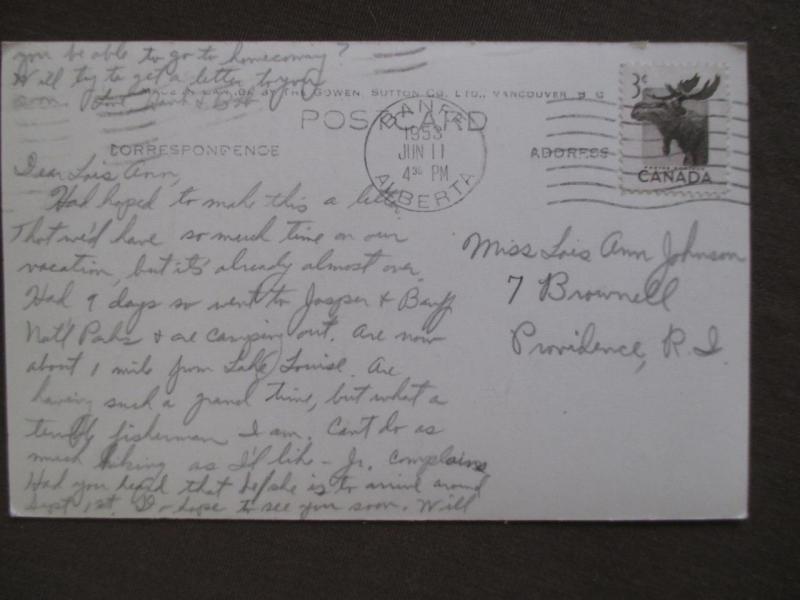 you be able to go to homecoming?
Will try to get a letter to you
soon. Love
BY THE GOWEN, SUTTON CO. LTD., VANCOUVER, B C
POST CARD
CORRESPONDENCE
ADDRESS
BANFF
1953
JUN 11
4 30 PM
ALBERTA
3¢
CANADA
Dear Lois Ann,
Had hoped to make this a letter
That we'd have so much time on our
vacation, but it's already almost over.
Had 9 days so went to Jasper & Banff
Nat'l Parks & are camping out. Are now
about 1 mile from Lake Louise. Are
having such a grand time, but what a
terrible fisherman I am. Can't do as
much hiking as I'd like - Jr. complains
Had you heard that he/she is to arrive around
Sept 1st. Do hope to see you soon. Will
Miss Lois Ann Johnson
7 Brownell
Providence, R.I